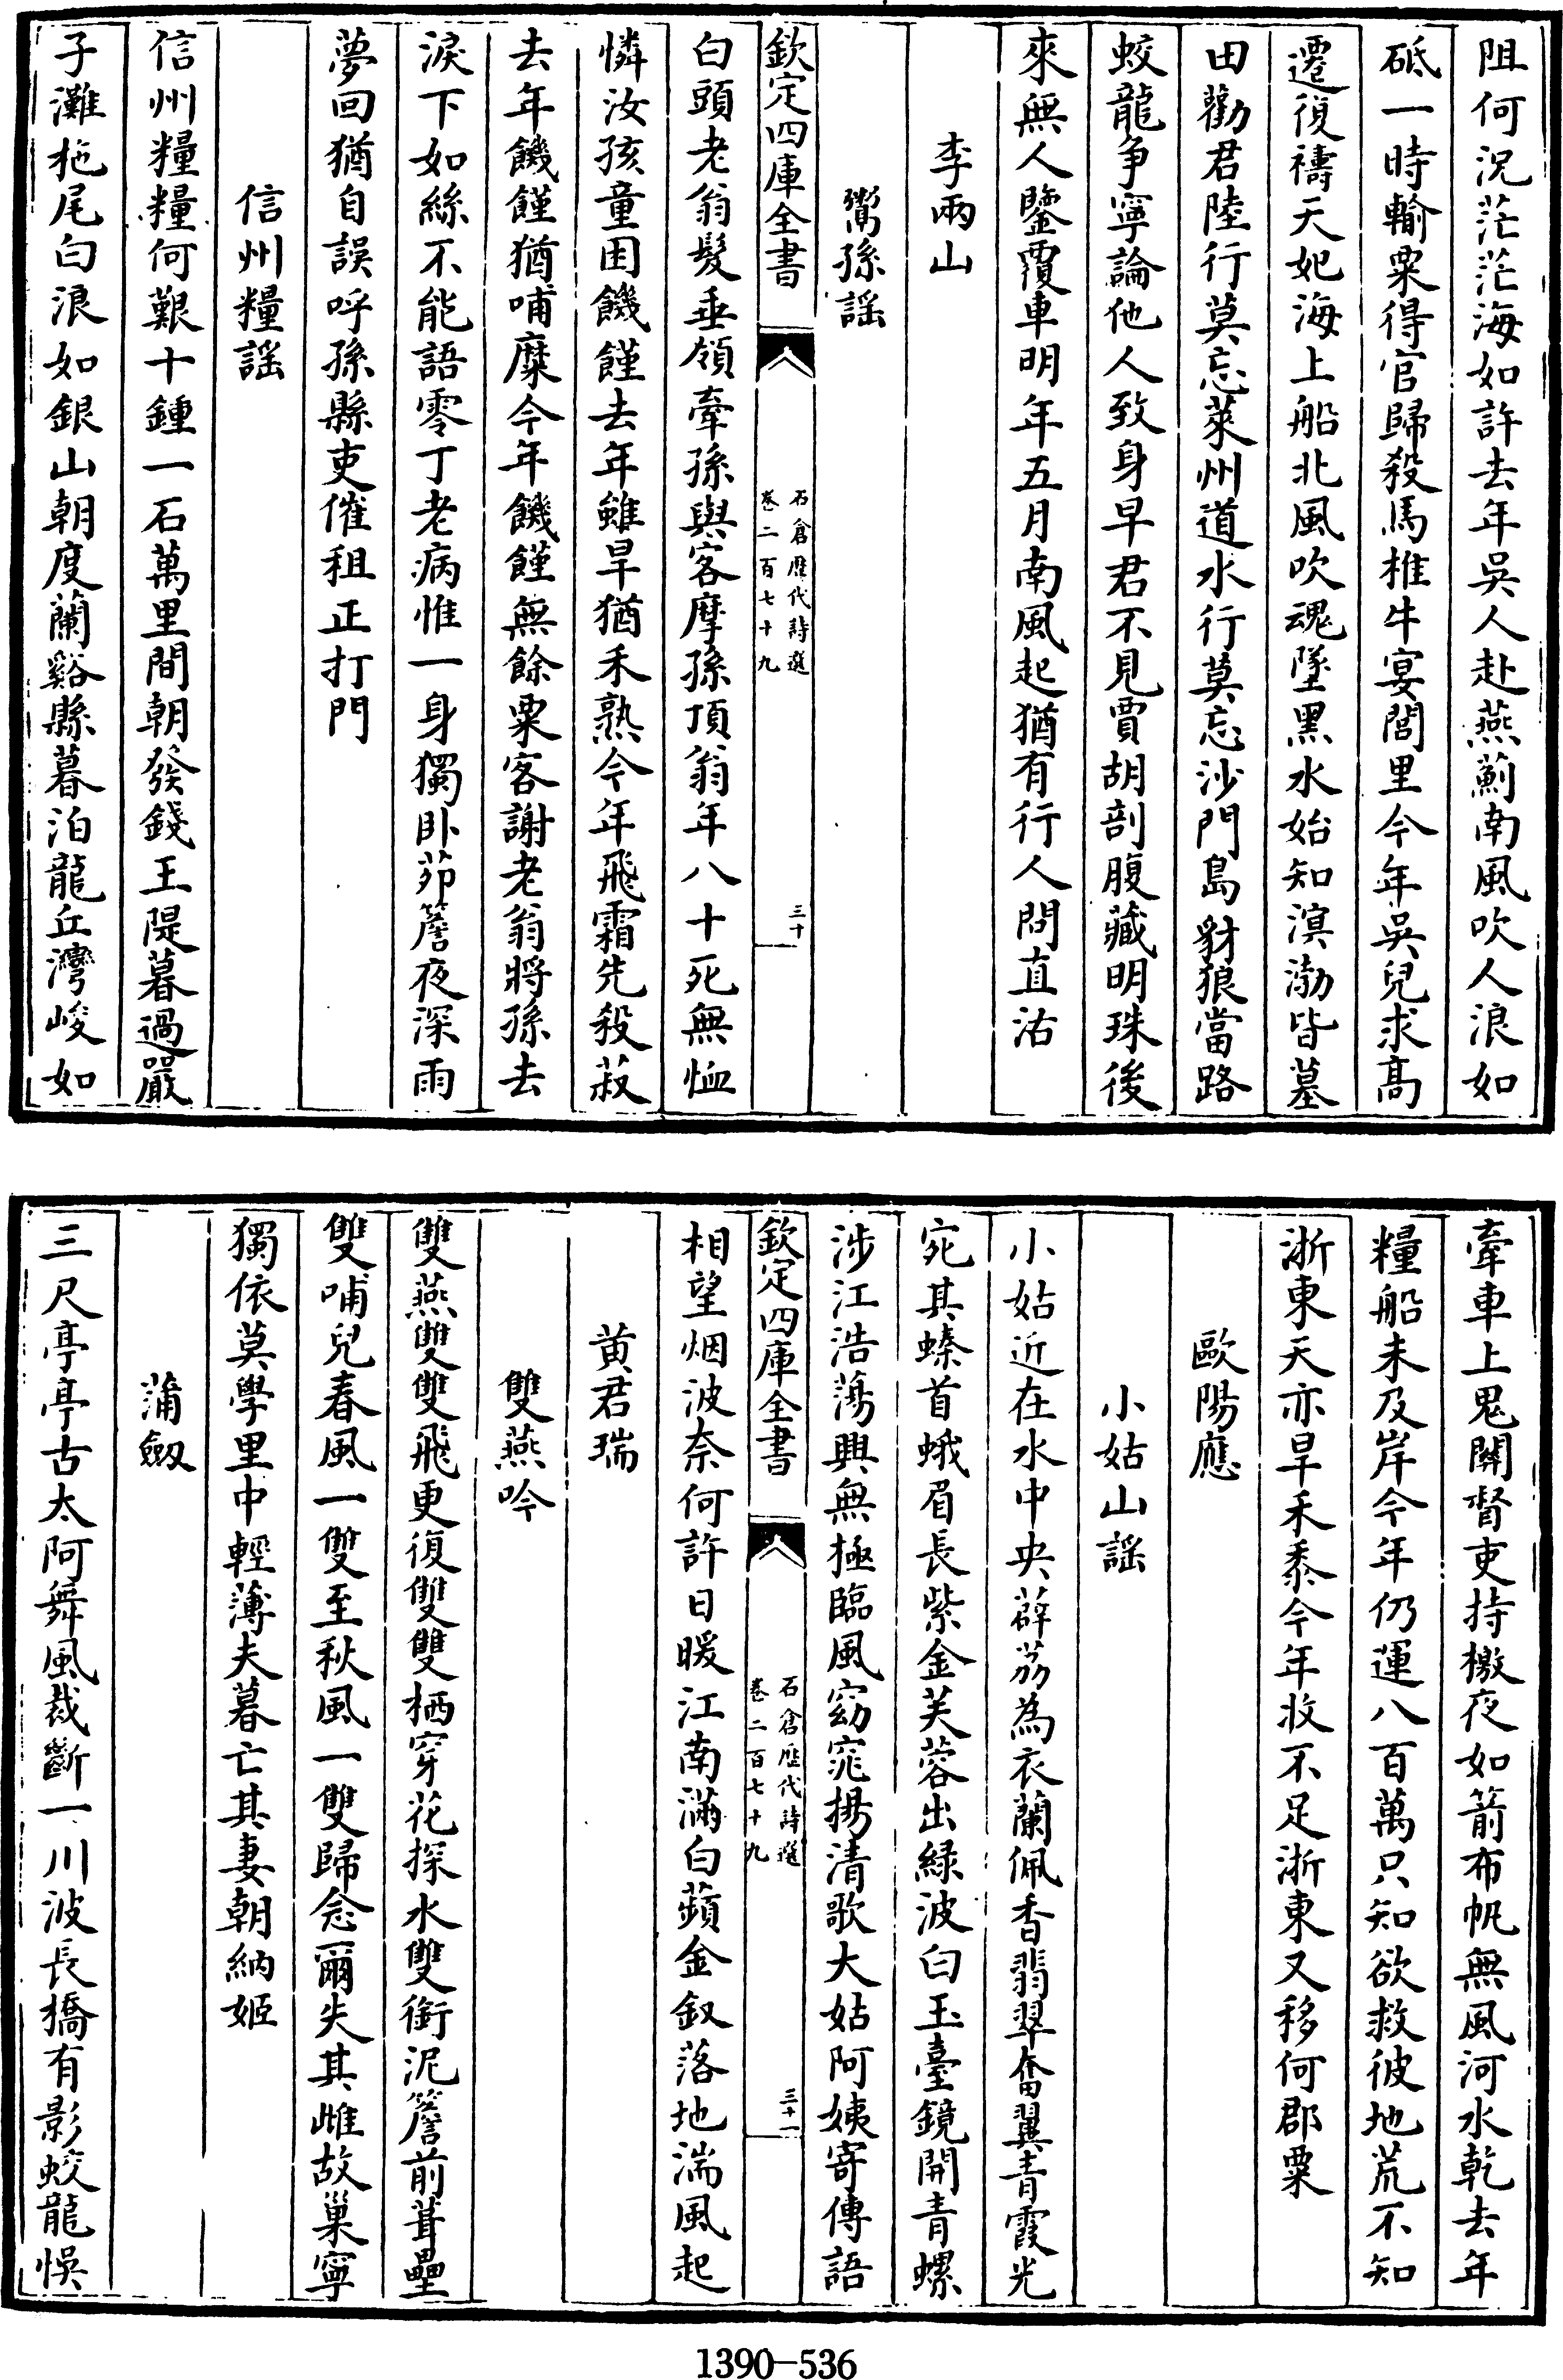 阻何況茫茫海如許去年吳人赴燕薊南風吹人浪如
砥一時輸粟得官歸殺馬椎牛宴閭里今年吳兒求高
遷復禱天妃海上船北風吹魂墜黑水始知溟渤皆墓
田勸君陸行莫忘萊州道水行莫忘沙門島豺狼當路
蛟龍爭寧論他人致身早君不見賈胡剖腹藏明珠後
來無人鑒覆車明年五月南風起猶有行人問直沽
李兩山
鬻孫謡
欽定四庫全書
石倉歷代詩選
卷二百七十九
三十
白頭老翁髮垂領牽孫與客摩孫頂翁年八十死無恤
憐汝孩童困饑饉去年雖旱猶禾熟今年飛霜先殺菽
去年饑饉猶哺糜今年饑饉無餘粟客謝老翁將孫去
淚下如絲不能語零丁老病惟一身獨卧茆簷夜深雨
夢回猶自誤呼孫縣吏催租正打門
信州糧謡
信州糧糧何艱十鍾一石萬里間朝發錢王隄暮過嚴
子灘柂尾白浪如銀山朝度蘭谿縣暮泊龍丘灣峻如
牽車上鬼關督吏持檄夜如箭布帆無風河水乾去年
糧船未及岸今年仍運八百萬只知欲救彼地荒不知
浙東天亦旱禾黍今年收不足浙東又移何郡粟
歐陽應
小姑山謡
小姑近在水中央薜荔為衣蘭佩香翡翠奮翼青霞光
宛其螓首蛾眉長紫金芙蓉出綠波白玉臺鏡開青螺
涉江浩蕩興無極臨風窈窕揚清歌大姑阿姨寄傳語
欽定四庫全書
石倉歷代詩選
卷二百七十九
三十一
相望烟波奈何許日暖江南滿白蘋金釵落地湍風起
黄君瑞
雙燕吟
雙燕雙雙飛更復雙雙栖穿花探水雙銜泥簷前葺壘
雙哺兒春風一雙至秋風一雙歸念爾失其雌故巢寧
獨依莫學里中輕薄夫暮亡其妻朝納姬
蒲劔
三尺亭亭古太阿舞風裁斷一川波長橋有影蛟龍悞
1390-536